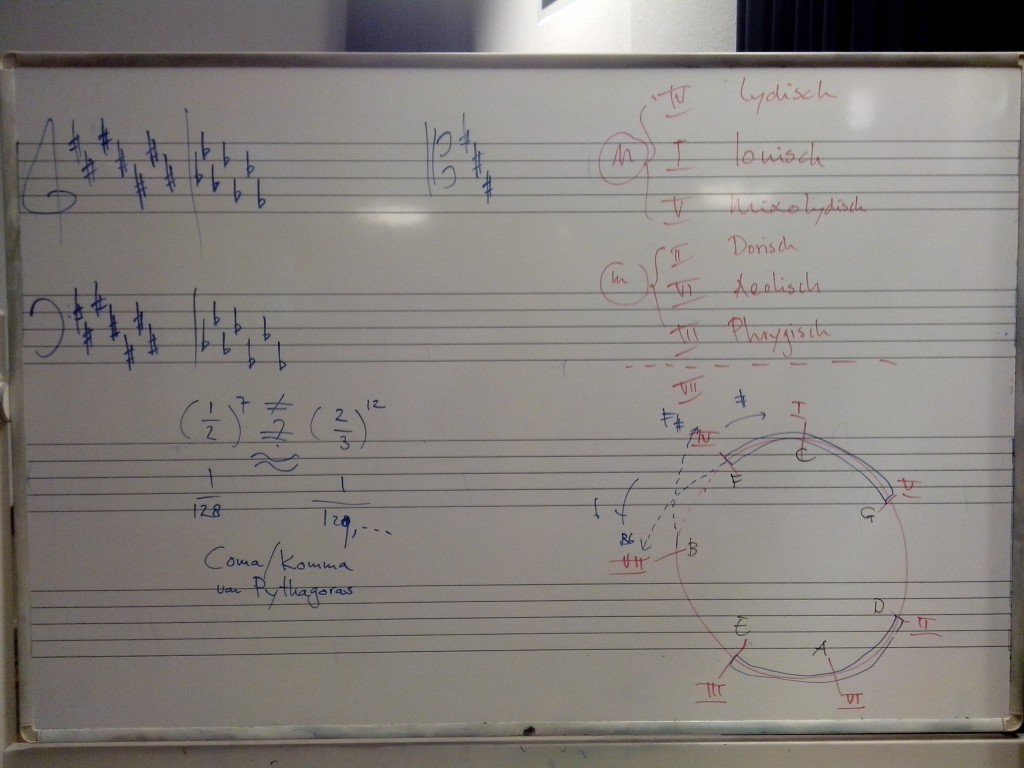 IV Lydisch
M I Ionisch
V Mixolydisch
m II Dorisch
VI Aeolisch
III Phrygisch
VII
(1/2)^7 ≠ ? ≈ (2/3)^12
1/128 1/129,...
Coma/Komma
von Pythagoras
F# IV # I
F C V
G
Bb VII B
E D II
A
III VI